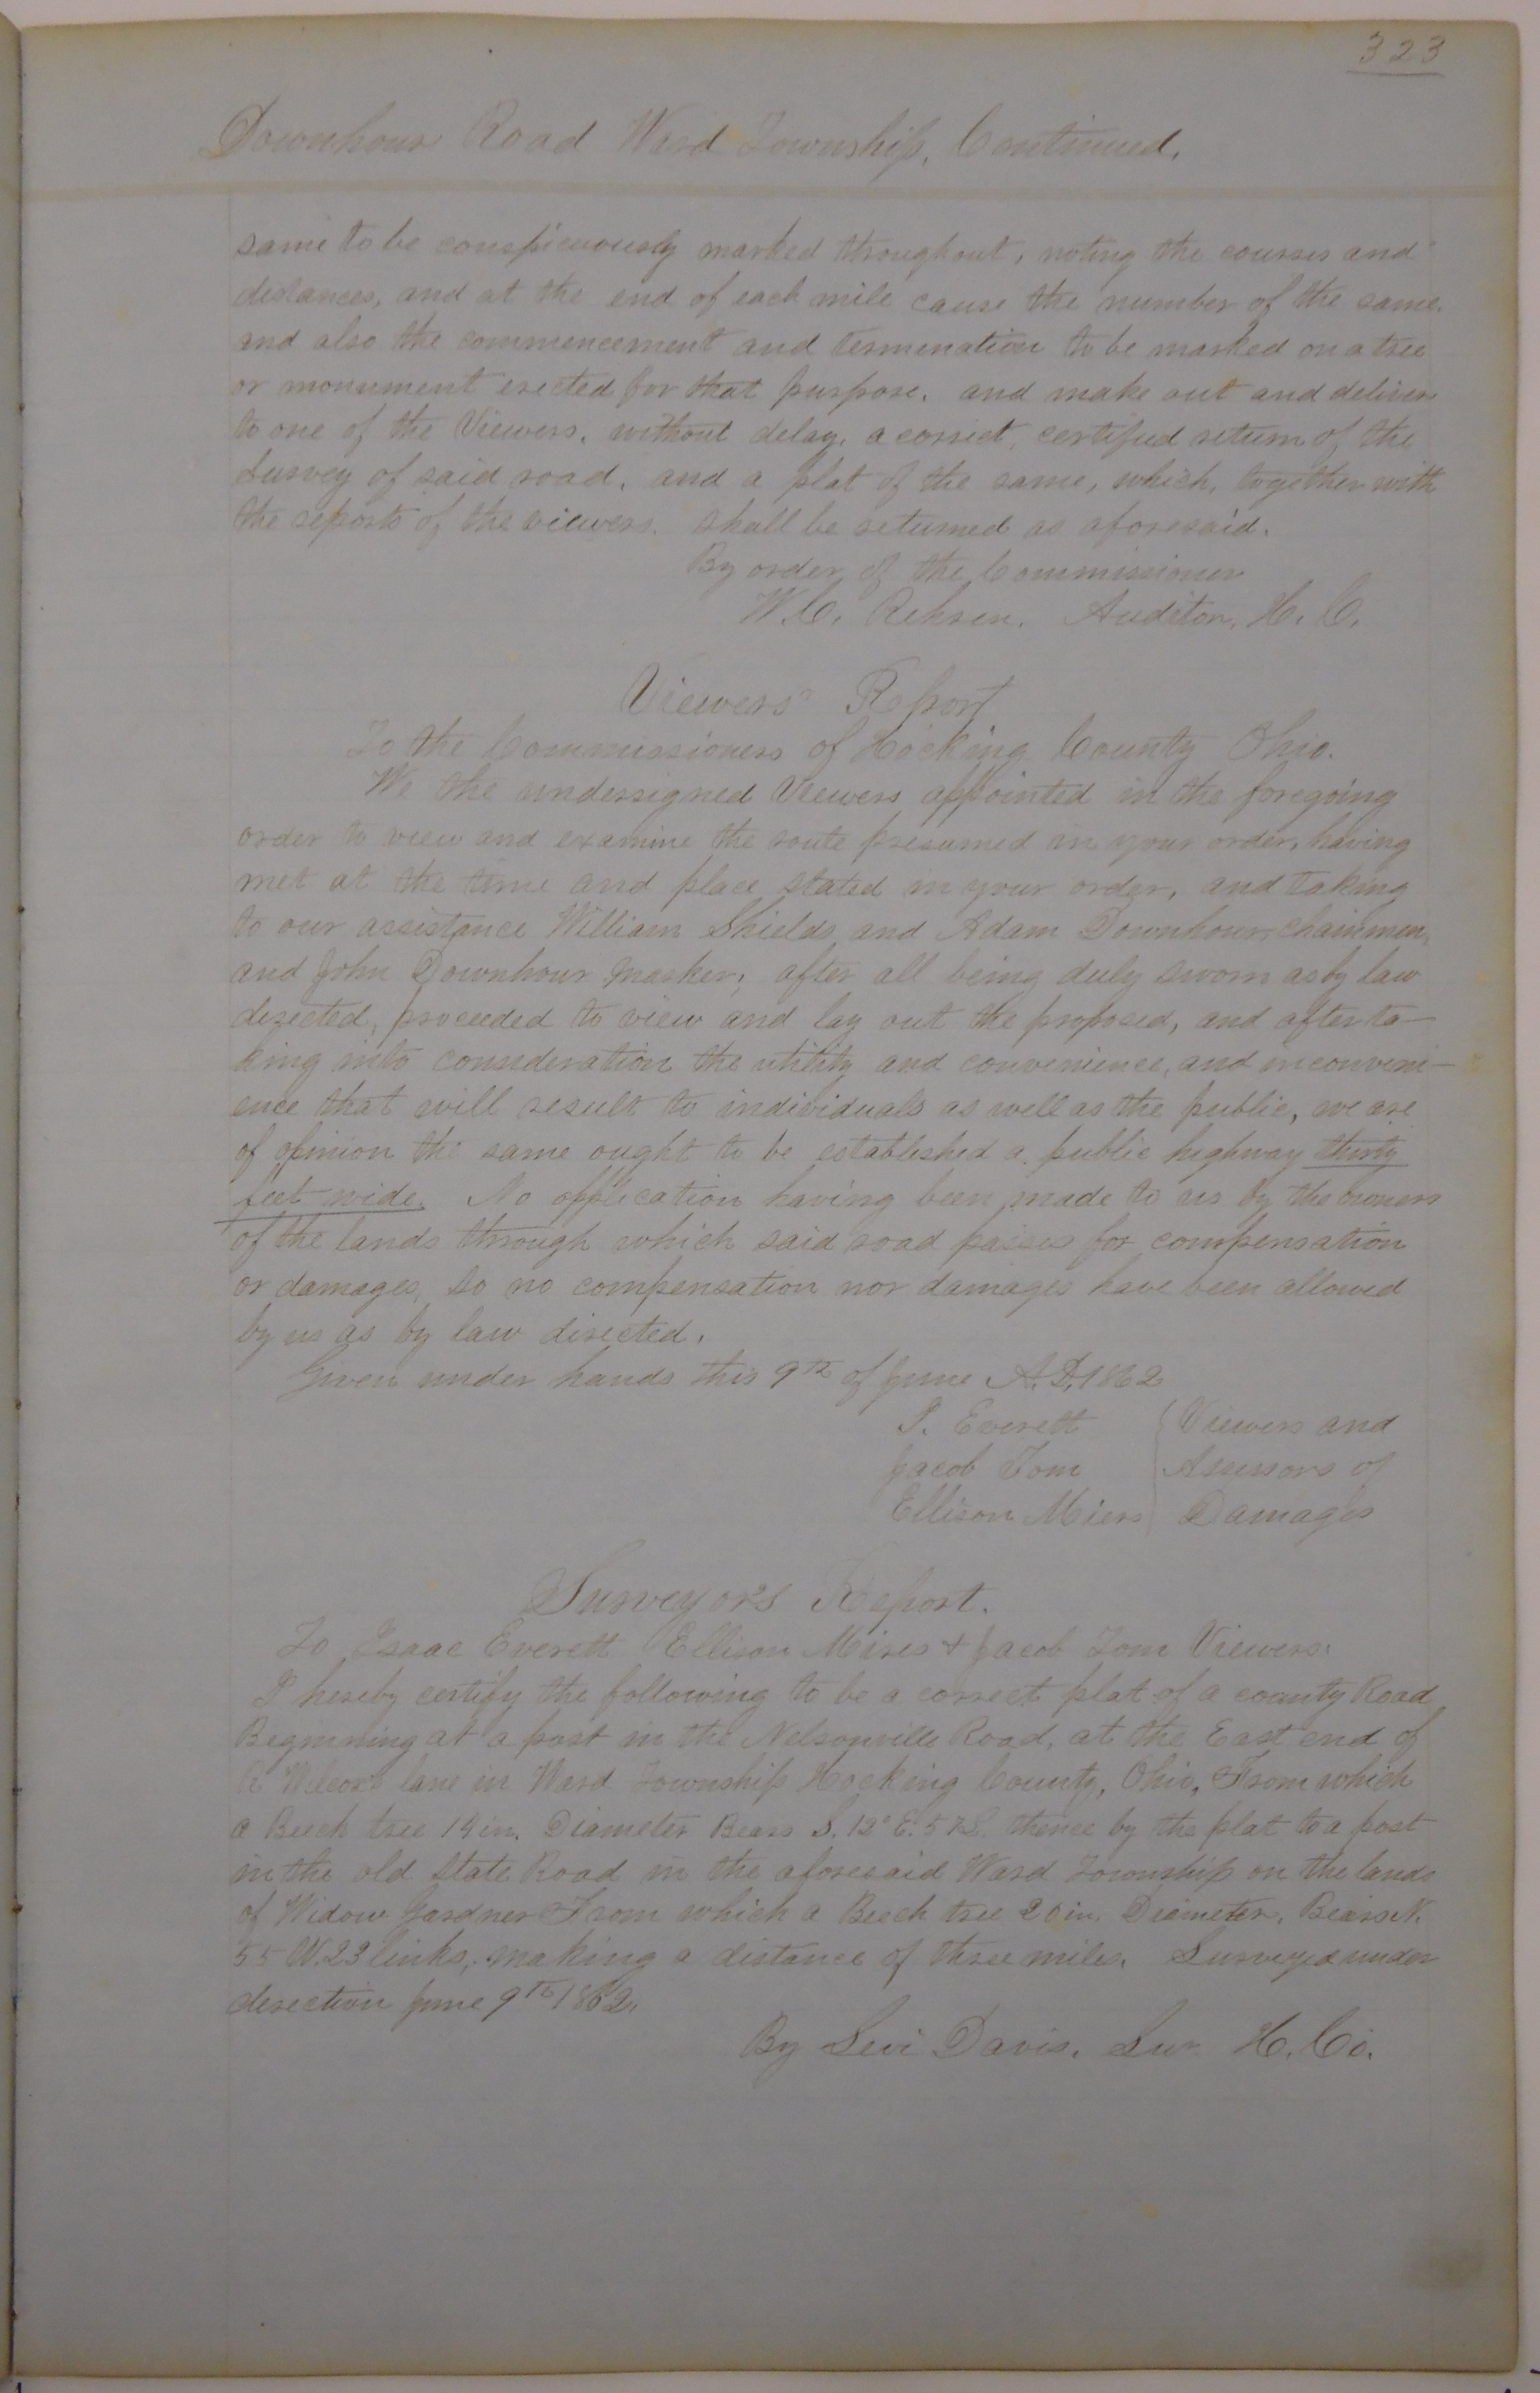 323
Downhour Road Ward Township, Continued.
same to be conspicuously marked throughout, noting the courses and
distances, and at the end of each mile cause the number of the same,
and also the commencement and termination to be marked on a tree
or monument erected for that purpose, and make out and deliver
to one of the Viewers, without delay, a correct, certified return of the
Survey of said road, and a plat of the same, which, together with
the reports of the viewers, shall be returned as aforesaid.
By order of the Commissioner
W. C. Auditor, H. C.
Viewers' Report
To the Commissioners of Hocking County Ohio.
We the undersigned Viewers appointed in the foregoing
order to view and examine the route presumed in your order, having
met at the time and place stated in your order, and taking
to our assistance William Shields and Adam Downhour, chainmen,
and John Downhour Marker, after all being duly sworn as by law
directed, proceeded to view and lay out the proposed, and after ta-
king into consideration the utility and convenience, and inconveni-
ence that will result to individuals as well as the public, we are
of opinion the same ought to be established a public highway thirty
feet wide. No application having been made to us by the owners
of the lands through which said road passes for compensation
or damages, so no compensation nor damages have been allowed
by us as by law directed.
Given under hands this 9th of June A.D. 1862
I. Everett Viewers and
Jacob Tom Assessors of
Ellison Miers Damages
Surveyors Report.
To Isaac Everett Ellison Mires & Jacob Tom Viewers.
I hereby certify the following to be a correct plat of a county Road
Beginning at a post in the Nelsonville Road, at the East end of
Wilcox's lane in Ward Township Hocking County, Ohio, From which
a Beech tree 14 in. Diameter Bears S. 12° E. 57 L. thence by the plat to a post
in the old State Road in the aforesaid Ward Township on the lands
of Widow Gardner From which a Beech tree 20 in. Diameter, Bears N.
55 W. 23 links, making a distance of three miles. Surveyed under
direction June 9th 1862.
By Levi Davis. Sur. H. Co.